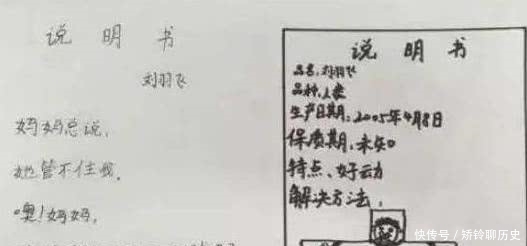 说明书
刘羽飞
妈妈总说,
她管不住我。
噢!妈妈,
说明书
品名:刘羽飞
品种:人类
生产日期:2005年4月8日
保质期:未知
特点:好动
解决方法:
快传号/矫铃聊历史